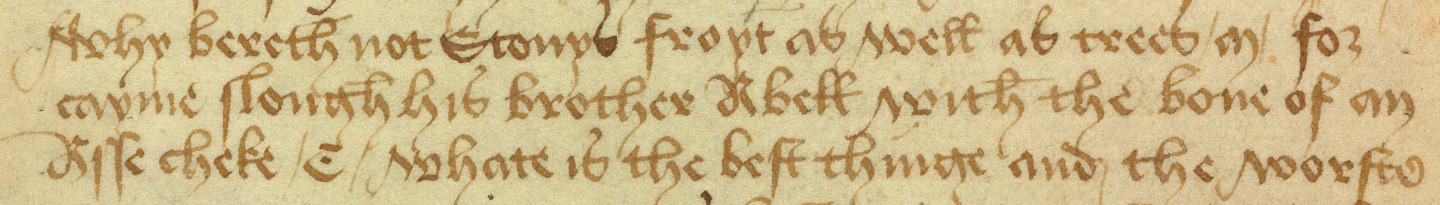 Why bereth not Stonys froyt as well as trees / m / for
cayme slough his brother Abell with the bone of an
Asse cheke / C / Whate is the best thinge and the worste